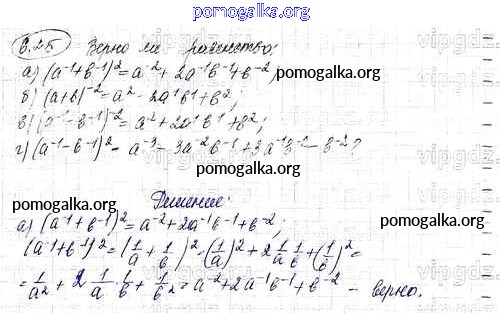 pomogalka.org
8.25 Верно ли равенство:
а) (a⁻¹+b⁻¹)² = a⁻²+2a⁻¹b⁻¹+b⁻²,
pomogalka.org
б) (a+b)⁻² = a² - 2a¹b¹+b²;
в) (a⁻¹-b⁻¹)⁻² = a⁻²+2a¹b¹+b²;
г) (a⁻¹-b⁻¹)² = a⁻³-3a⁻²b⁻¹+3a⁻¹b⁻²-b⁻²?
Решение:
pomogalka.org pomogalka.org
а) (a⁻¹+b⁻¹)² = a⁻²+2a⁻¹b⁻¹+b⁻²;
(a⁻¹+b⁻¹)² = (1/a + 1/b)² = (1/a)² + 2 1/a 1/b + (1/b)² =
= 1/a² + 2 1/a · 1/b + 1/b² = a⁻²+2a⁻¹b⁻¹+b⁻² - верно.
pomogalka.org